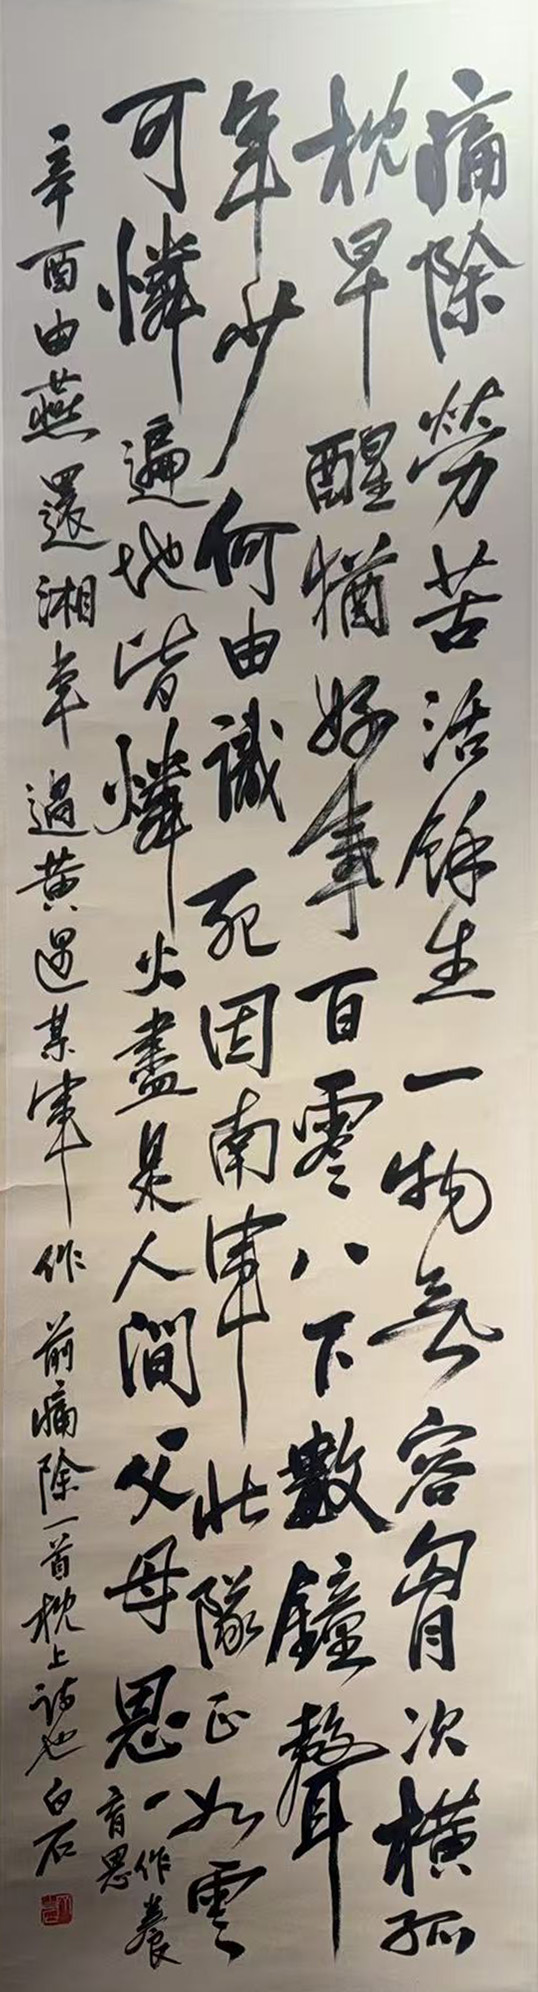 痛除勞苦活餘生一物無容胷次橫孤
枕早醒猶好事百零八下數鐘聲
年少何由識死因南軍北隊正如雲
可憐遍地皆燐火盡是人間父母恩一作養
育恩
辛酉由燕還湘車過黃遇某軍作前痛除一首枕上詩也白石